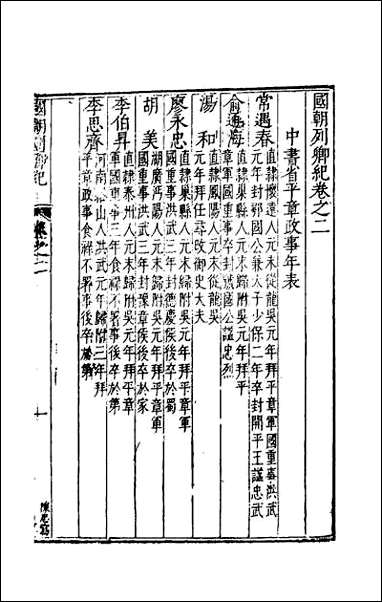 國朝列卿紀卷之二
中書省平章政事年表
常遇春直隸懷遠人元末從龍吳元年拜平章軍國重事洪武
元年封鄂國公兼太子少保二年卒封開平王謚忠武
俞通海直隸巢縣人元末從龍吳元年拜平
章軍國重事卒封虢國公謚忠烈
湯和直隸鳳陽人元末從龍吳
元年拜任尋改御史大夫
廖永忠直隸巢縣人元末歸附吳元年拜平章軍
國重事洪武三年封德慶侯後卒於蜀
胡美湖廣沔陽人元末歸附吳元年拜平章軍
國重事洪武三年封豫章侯後卒於家
李伯昇直隸泰州人元末歸附吳元年拜平章
軍國重事三年食祿不署事後卒於第
李思齊河南羅山人洪武元年歸附三年拜
平章政事食祿不署事後卒於第
國朝列卿紀